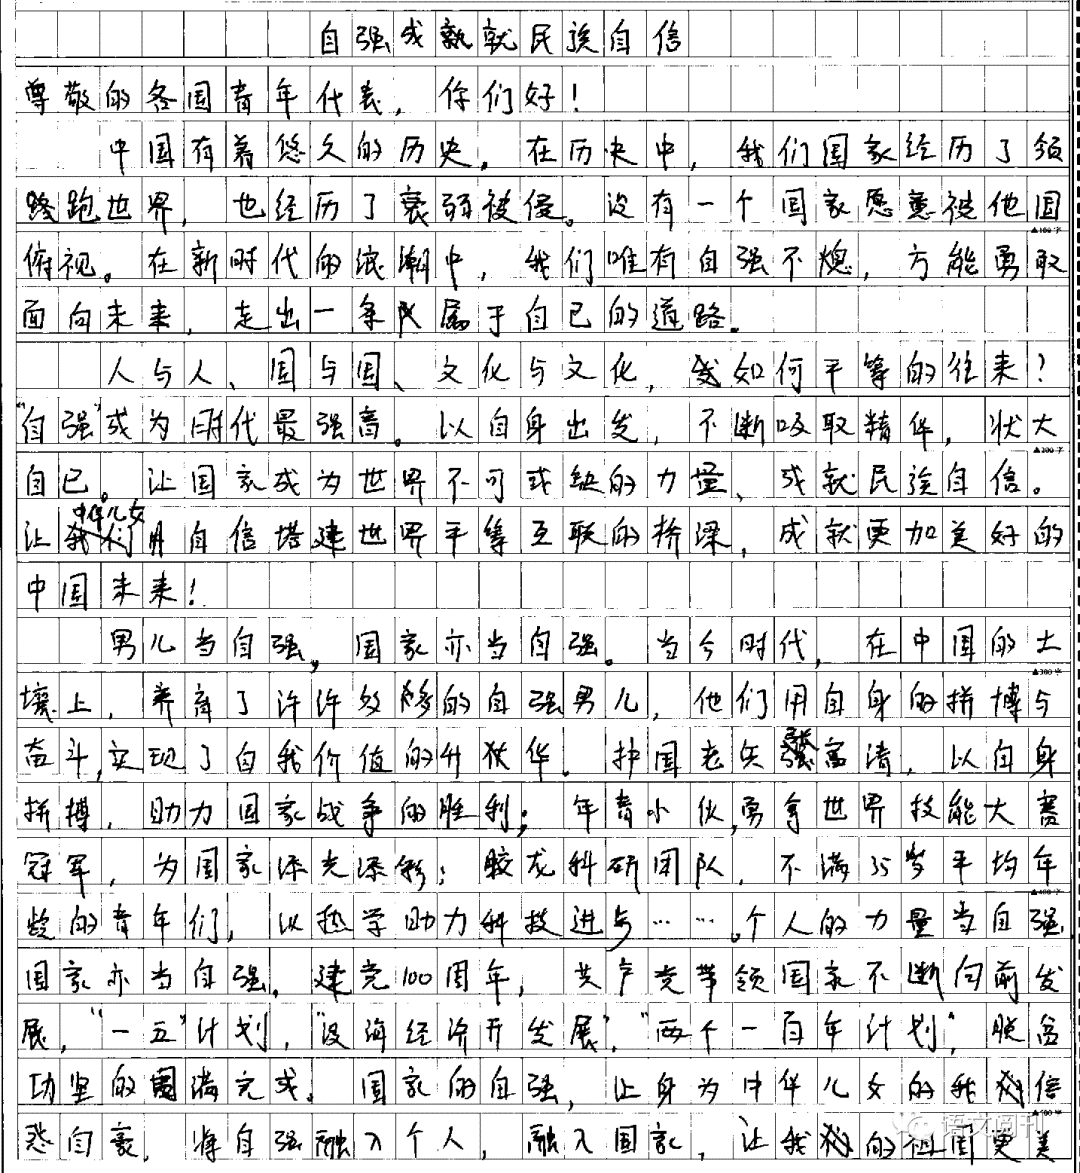 自强成就民族自信
尊敬的各国青年代表，你们好！
中国有着悠久的历史。在历史中，我们国家经历了领
跑世界，也经历了衰弱被侵。没有一个国家愿意被他国
▲100字
俯视。在新时代的浪潮中，我们唯有自强不熄，方能勇敢
面向未来，走出一条属于自己的道路。
人与人、国与国、文化与文化，如何平等的往来？
"自强"成为时代最强音。以自身出发，不断吸取精华，状大
▲200字
自己。让国家成为世界不可或缺的力量，成就民族自信。
让中华儿女用自信搭建世界平等互联的桥梁，成就更加美好的
中国未来！
男儿当自强，国家亦当自强。当今时代，在中国的土
▲300字
壤上，养育了许许多多的自强男儿，他们用自身的拼搏与
奋斗，实现了自我价值的升华。护国老兵富清，以自身
拼搏，助力国家战争的胜利；年青小伙，勇拿世界技能大赛
冠军，为国家添光添彩；蛟龙科研团队，不满35岁平均年
▲400字
龄的青年们，以热学助力科技进步……。个人的力量当自强
国家亦当自强。建党100周年，共产党带领国家不断向前发
展，"一五"计划，"沿海经济开发展"，"两个一百年计划"，脱贫
功坚的圆满完成。国家的自强，让身为中华儿女的我信
▲500字
悉自豪，将自强融入个人，融入国家，让我的祖国更美
语文阅刊